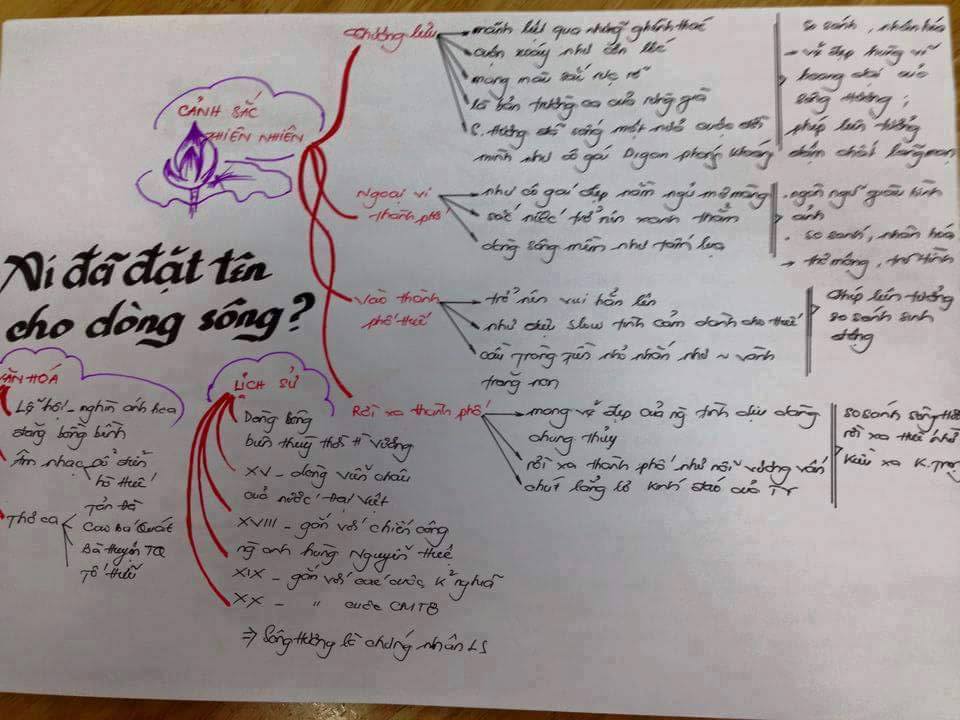 CẢNH SẮC
THIÊN NHIÊN
Thượng lưu
mãnh liệt qua những ghềnh thác
cuộn xoáy như cơn lốc
mang màu sắc rực rỡ
là bản trường ca của rừng già
S. Hương đã sống một nửa cuộc đời
mình như cô gái Digan phóng khoáng
so sánh, nhân hóa
→ vẻ đẹp hùng vĩ
hoang dại của
sông Hương;
phép liên tưởng
đậm chất lãng mạn
Ngoại vi
thành phố
như cô gái đẹp nằm ngủ mơ màng
sắc nước trở nên xanh thẳm
dòng sông mềm như tấm lụa
. ngôn ngữ giàu hình
ảnh
. so sánh, nhân hóa
→ thơ mộng, trữ tình
Vào thành
phố Huế
trở nên vui hẳn lên
như điệu slow tình cảm dành cho Huế
cầu Trắng nhỏ nhắn như ~ vành
trăng non
phép liên tưởng
so sánh sinh
động
Rời xa thành phố
mang vẻ đẹp của ng tình dịu dàng
chung thủy
rời xa thành phố như nỗi vương vấn
chút lẳng lơ kín đáo của TY
so sánh sông Hương
rời xa Huế như
Kiều xa K. Trọng
Ai đã đặt tên
cho dòng sông?
VĂN HÓA
Lễ hội - nghìn ánh hoa
đăng bồng bềnh
Âm nhạc cổ điển
hò Huế
Thơ ca
Tản Đà
Cao Bá Quát
Bà Huyện TQ
Tố Hữu
LỊCH SỬ
Dòng sông
biên thùy thời H. Vương
XV - dòng viễn châu
của nước Đại Việt
XVIII - gắn với chiến công
ng anh hùng Nguyễn Huệ
XIX - gắn với các cuộc K² nghĩa
XX - " cuộc CMT8
⇒ Sông Hương là chứng nhân LS